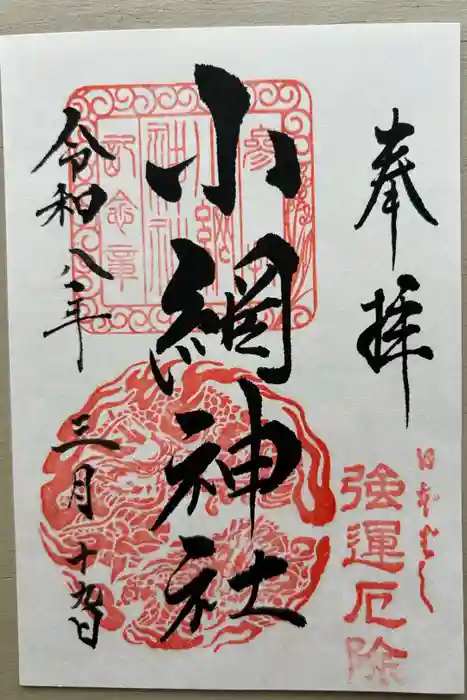 奉拝
日本ばし
強運厄除
小網神社
參拝
小網
神社
記念章
令和八年
三月十九日